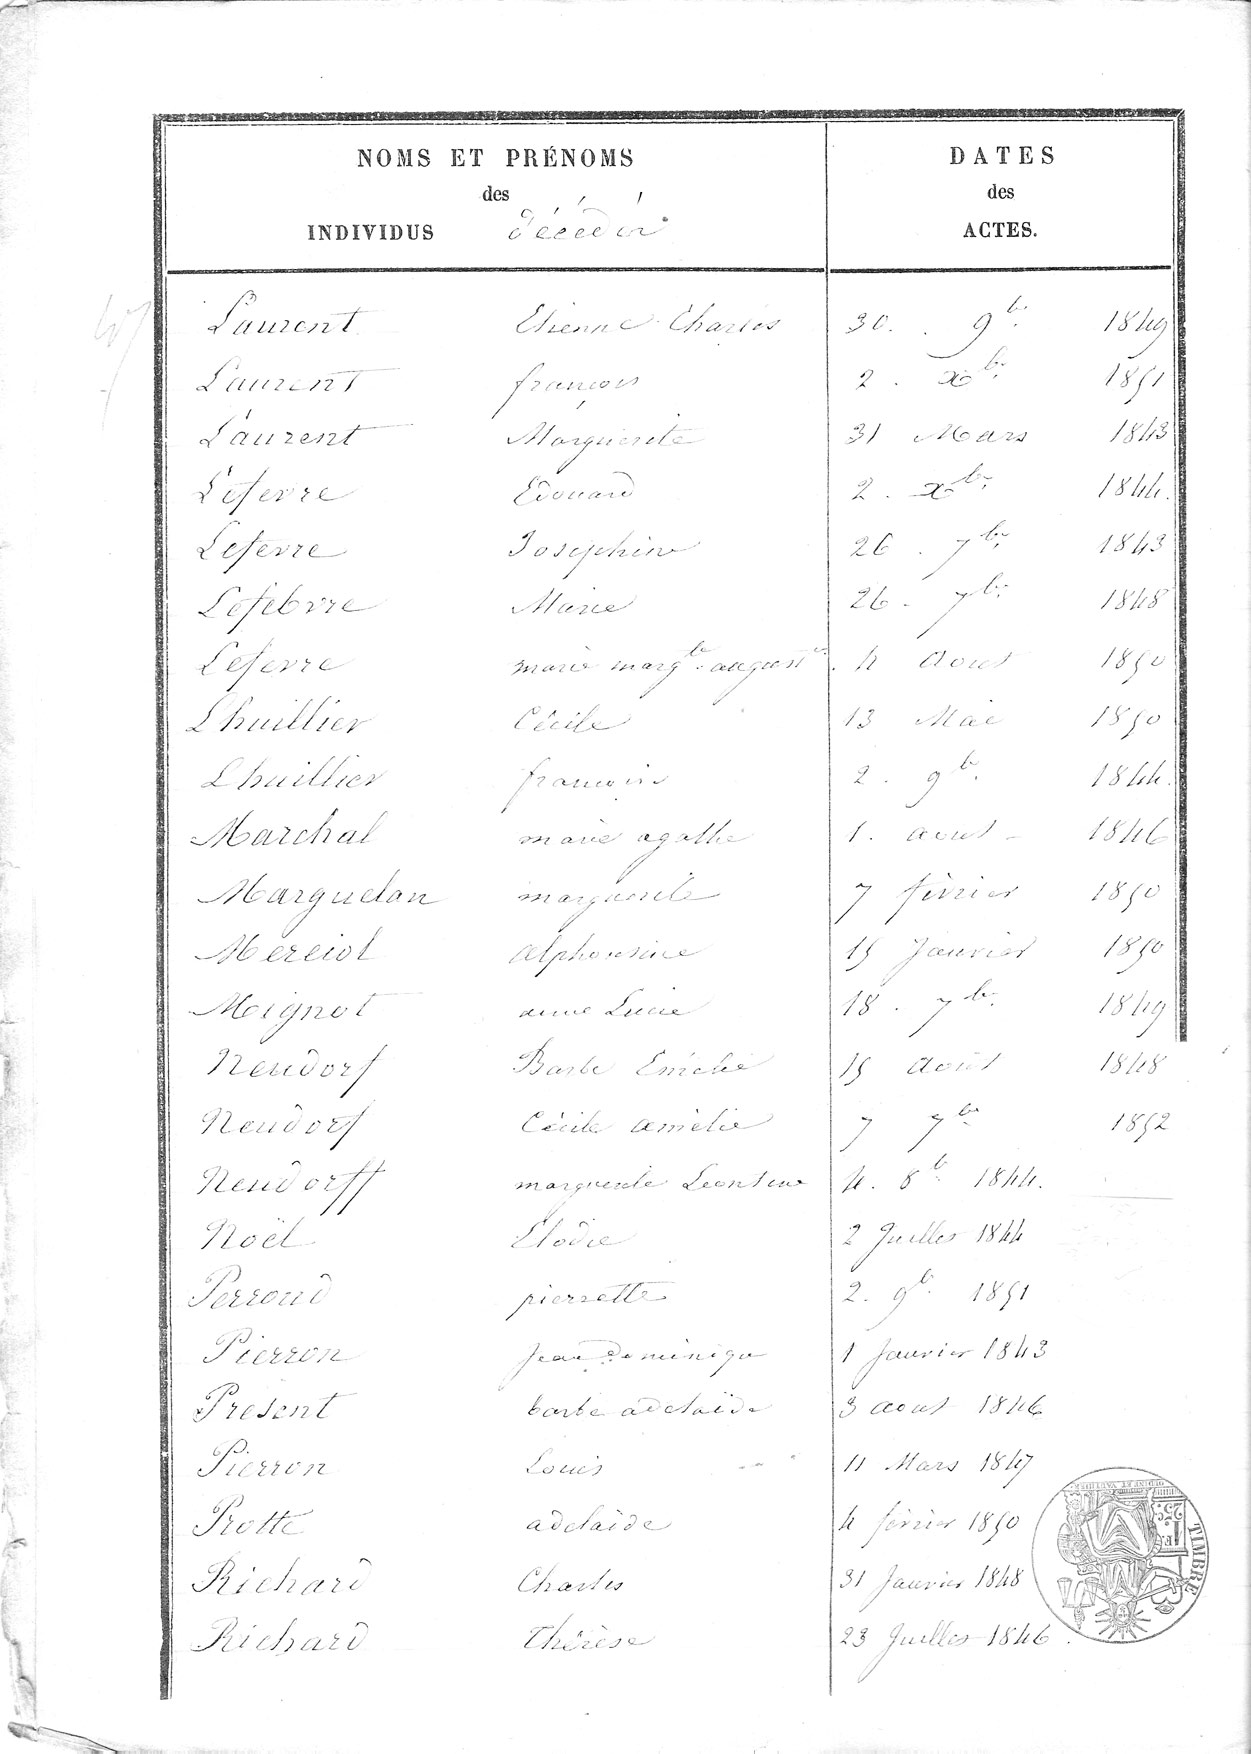 NOMS ET PRÉNOMS DATES
des des
INDIVIDUS décédés ACTES.
Laurent Etienne Charles 30. 9bre 1849
Laurent françois 2. Xbre 1851
Laurent Marguerite 31 Mars 1843
Lefevre Edouard 2. Xbre 1844.
Lefevre Josephine 26. 7bre 1843
Lefebvre Marie 26. 7bre 1848
Lefevre marie margte august 4 Aout 1850
Lhuillier Cécile 13 Mai 1850
Lhuillier françois 2. 9bre 1844.
Marchal marie agathe 1. aout 1846
Marguelon marguerite 7 février 1850
Merciol alphonsine 15 Janvier 1850
Mignot anne Lucie 18. 7bre 1849
Neudorf Barbe Emélie 15 Aout 1848
Neudorf Cécile amélie 7 7bre 1852
Neudorff marguerite Leontine 4. 8b 1844.
Noël Elodie 2 Juillet 1844
Perroud pierrette 2. 9b. 1851
Pierron Jean Dominique 1 Janvier 1843
Présent barbe adelaïde 3 aout 1846
Pierron Louis 11 Mars 1847
Protte adelaïde 4 février 1850
Richard Charles 31 Janvier 1848
Richard Thérèse 23 Juillet 1846.
TIMBRE
1 F.
25c.